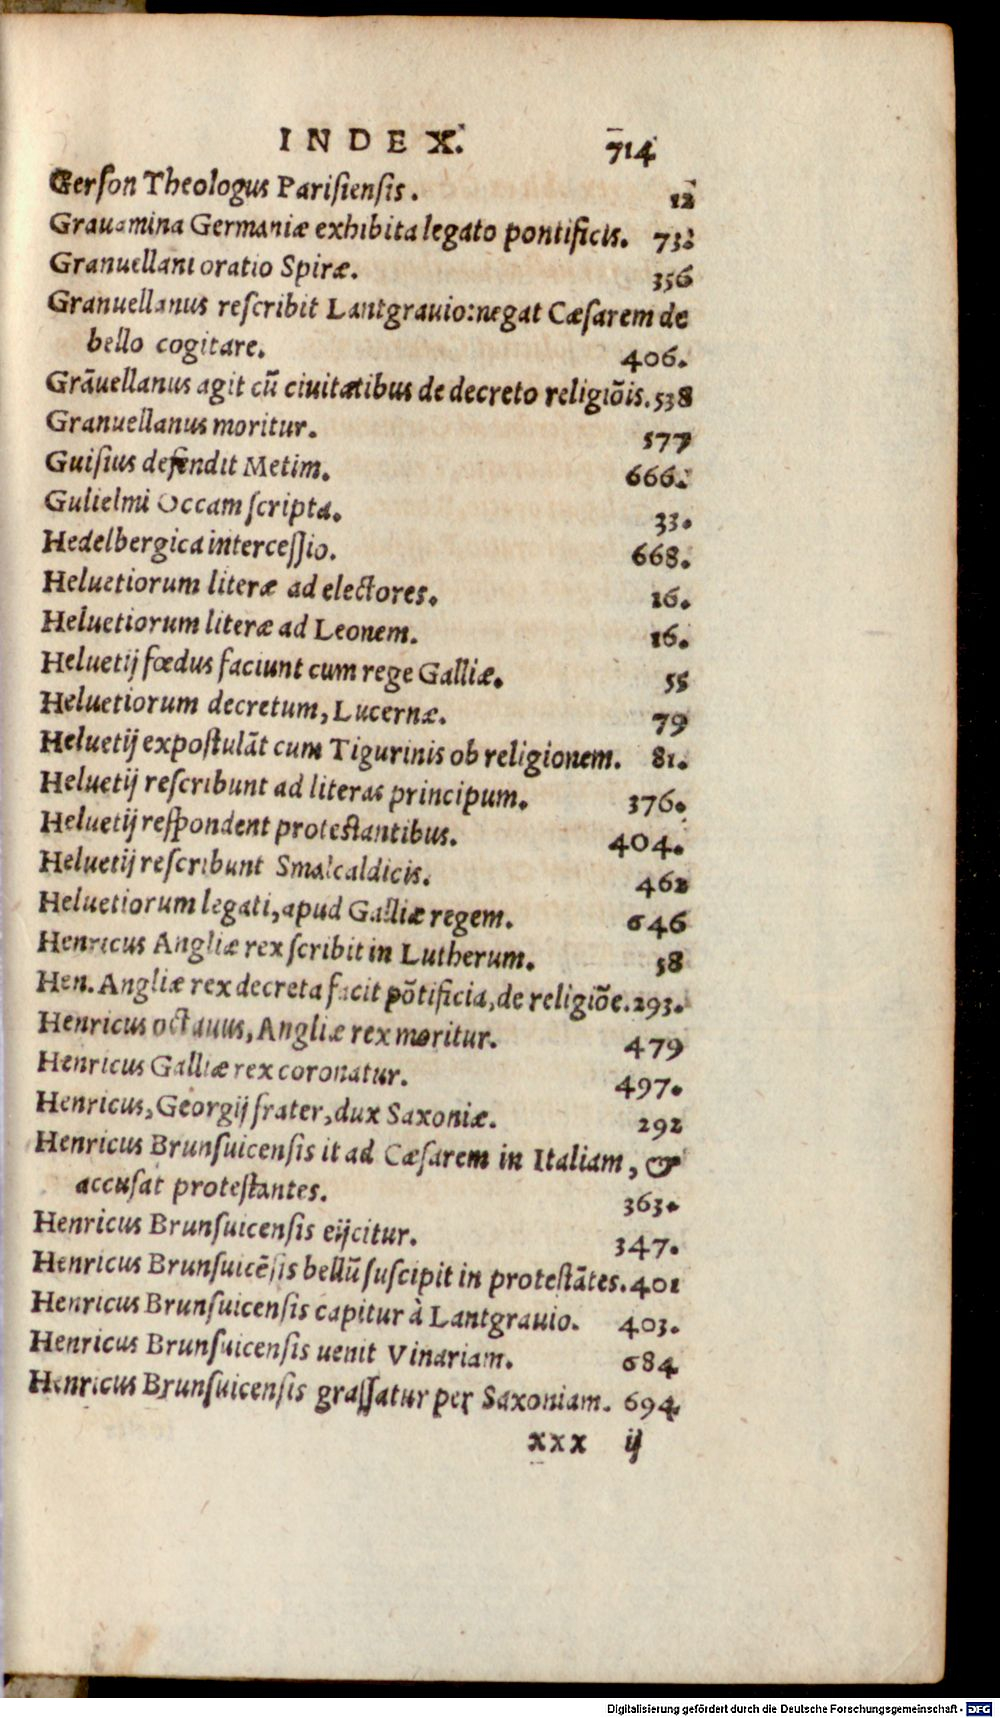 INDEX. 714
Gerson Theologus Parisiensis. 12
Grauamina Germaniæ exhibita legato pontificis. 73.
Granuellani oratio Spiræ. 356
Granuellanus rescribit Lantgrauio: negat Cæsarem de
bello cogitare. 406.
Grāuellanus agit cū ciuitatibus de decreto religiōis. 538
Granuellanus moritur. 577
Guisius defendit Metim. 666.
Gulielmi Occam scripta. 33.
Hedelbergica intercessio. 668.
Heluetiorum literæ ad electores. 16.
Heluetiorum literæ ad Leonem. 16.
Heluetij fœdus faciunt cum rege Galliæ. 55
Heluetiorum decretum, Lucernæ. 79
Heluetij expostulāt cum Tigurinis ob religionem. 81.
Heluetij rescribunt ad literas principum. 376.
Heluetij respondent protestantibus. 404.
Heluetij rescribunt Smalcaldicis. 462
Heluetiorum legati, apud Galliæ regem. 646
Henricus Angliæ rex scribit in Lutherum. 58
Hen. Angliæ rex decreta facit pōtificia, de religiōe. 293.
Henricus octauus, Angliæ rex moritur. 479
Henricus Galliæ rex coronatur. 497.
Henricus, Georgij frater, dux Saxoniæ. 292
Henricus Brunsuicensis it ad Cæsarem in Italiam, &
accusat protestantes. 363.
Henricus Brunsuicensis eijcitur. 347.
Henricus Brunsuicēsis bellū suscipit in protestātes. 401
Henricus Brunsuicensis capitur à Lantgrauio. 403.
Henricus Brunsuicensis uenit Vinariam. 684
Henricus Brunsuicensis grassatur per Saxoniam. 694
xxx ij
Digitalisierung gefördert durch die Deutsche Forschungsgemeinschaft - DFG